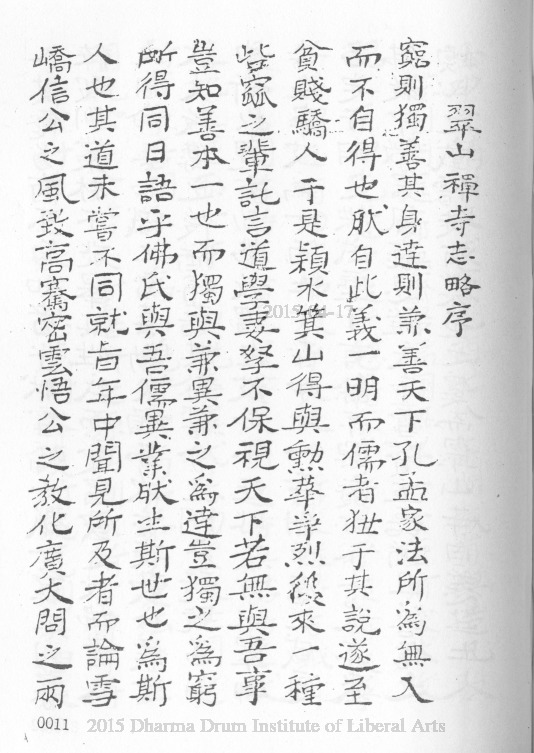 翠山禪寺志略序
窮則獨善其身達則兼善天下孔孟家法所為無入
而不自得也肰自此義一明而儒者狃于其說遂至
貧賤驕人于是潁水箕山得與勲華爭烈後來一種
呰窳之輩託言道學妻孥不保視天下若無與吾事
豈知善本一也而獨與兼異兼之為達豈獨之為窮
所得同日語乎佛氏與吾儒異業肰生斯世也為斯
人也其道未嘗不同就百年中聞見所及者而論雪
嶠信公之風致高騫密雲悟公之教化廣大閤之兩
2015-04-17
0011 2015 Dharma Drum Institute of Liberal Arts